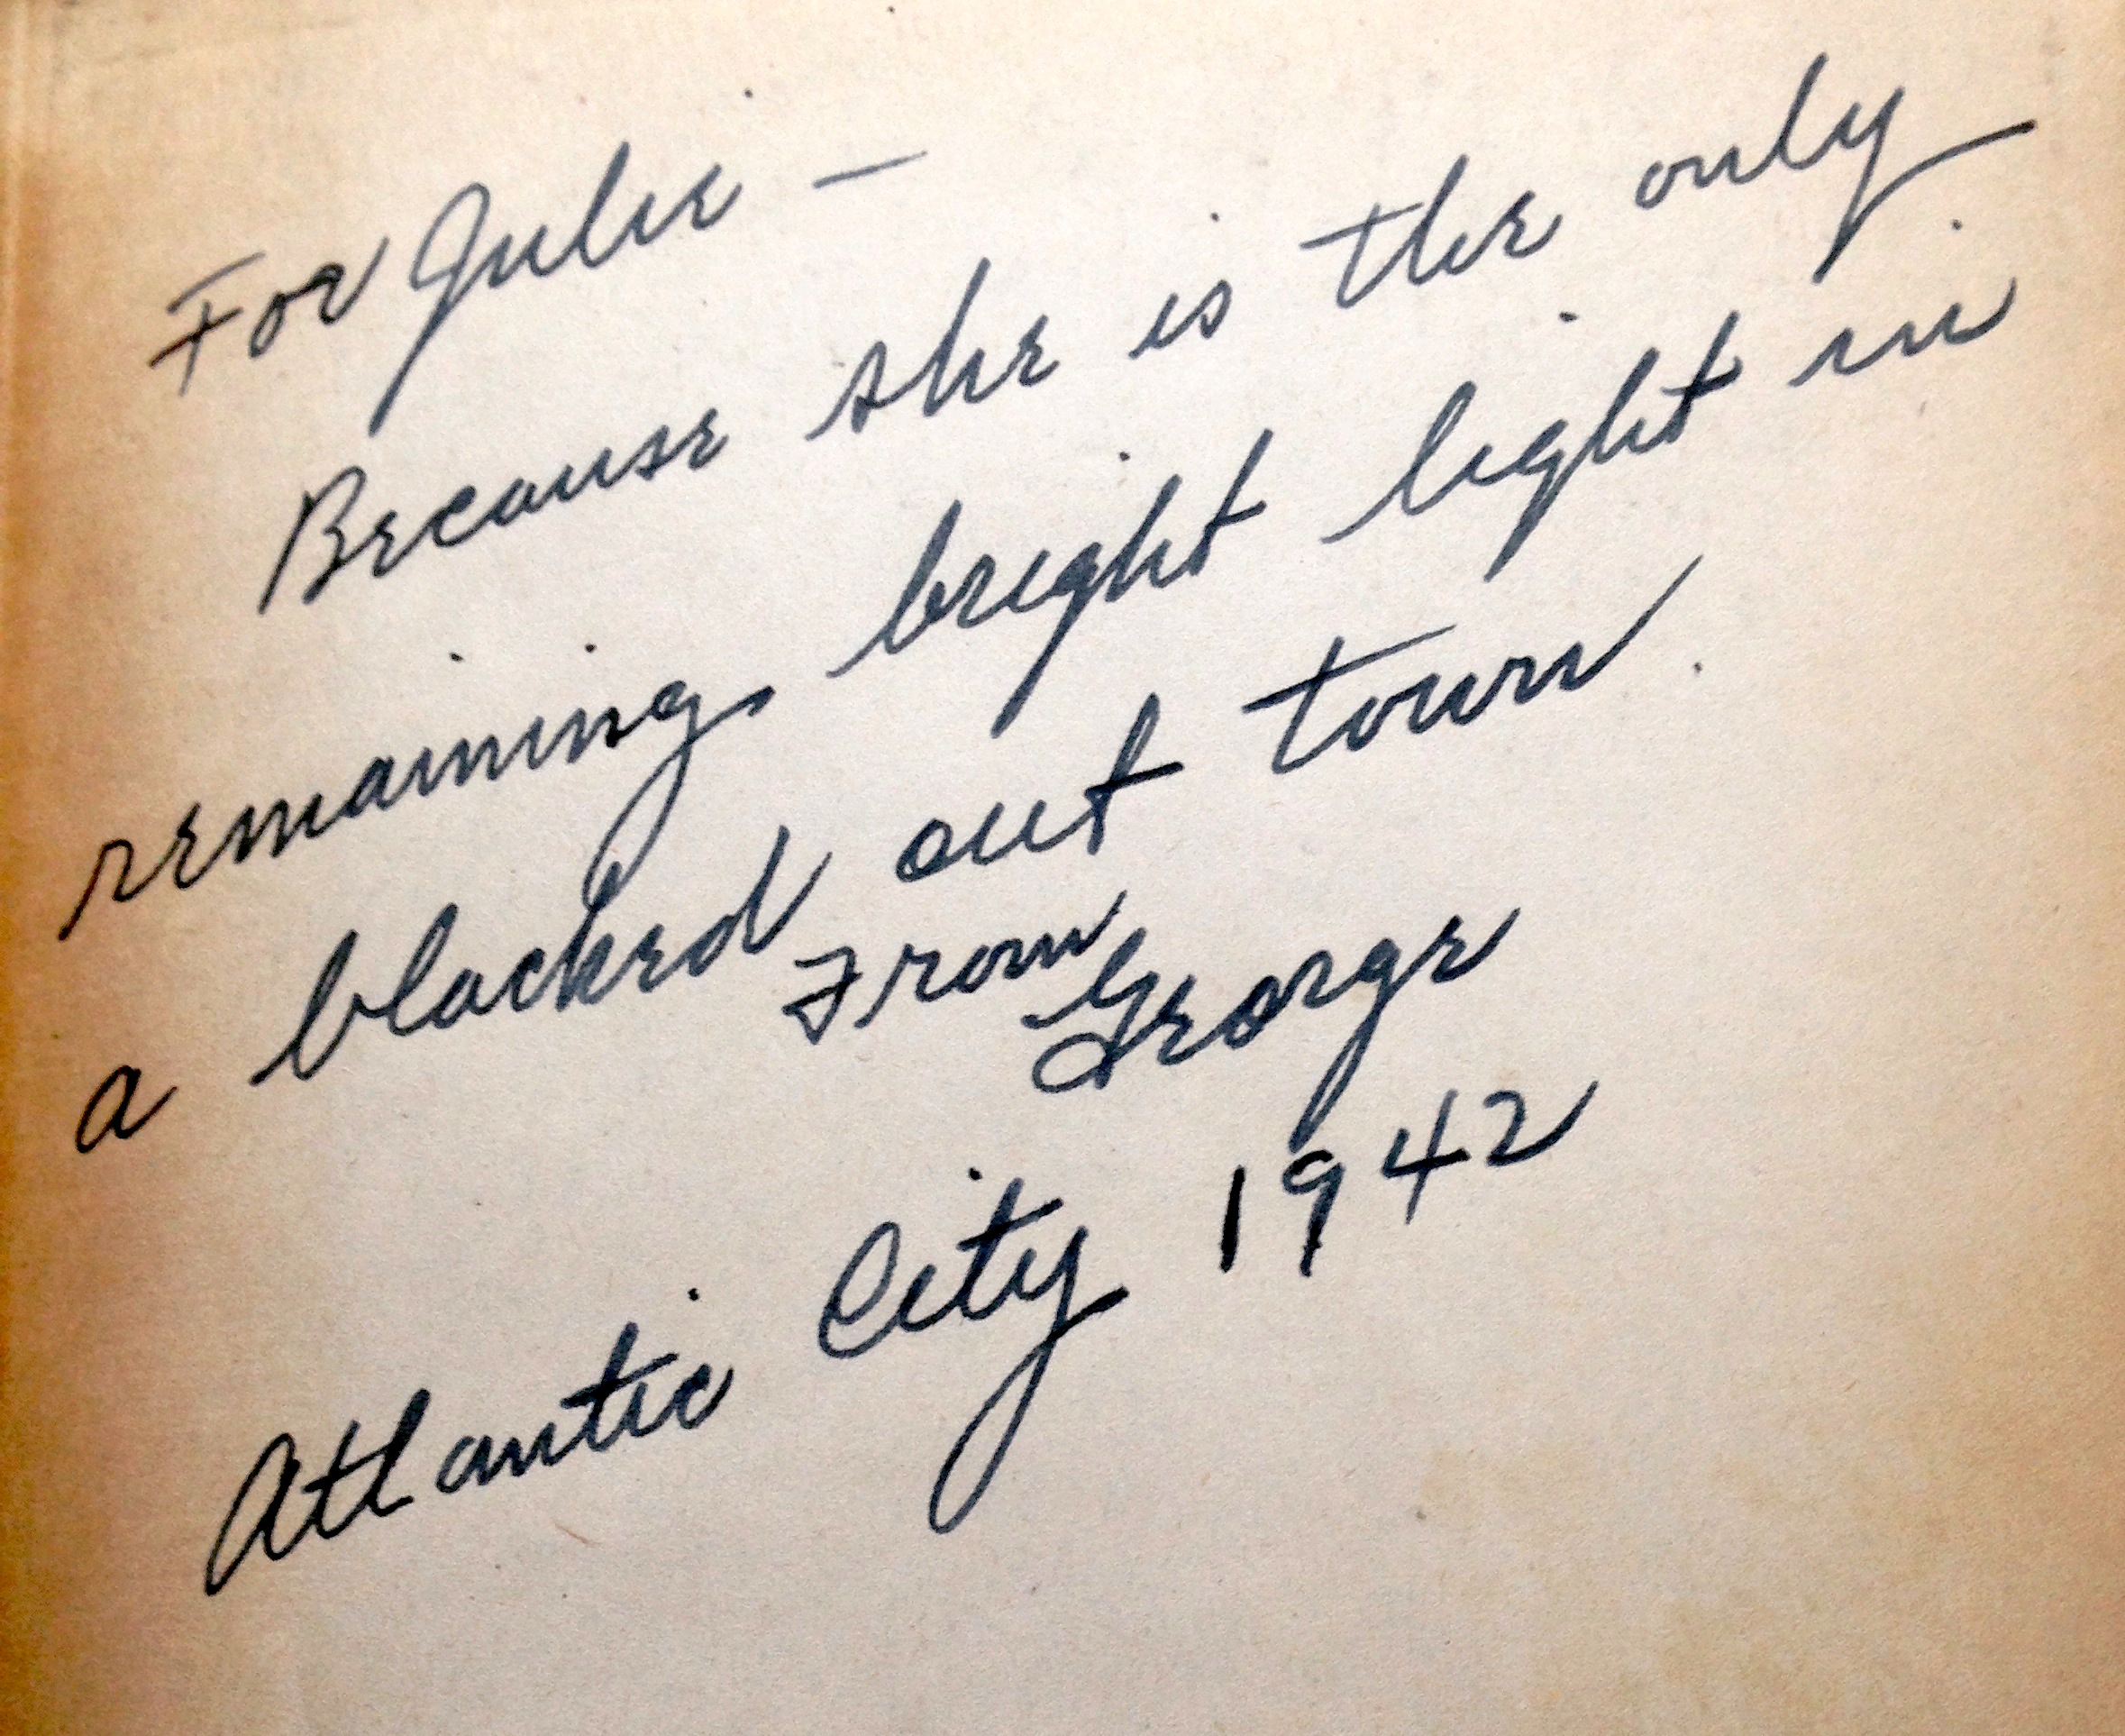 For Julie —
Because she is the only
remaining bright light in
a blacked out town.
From
George
Atlantic City 1942